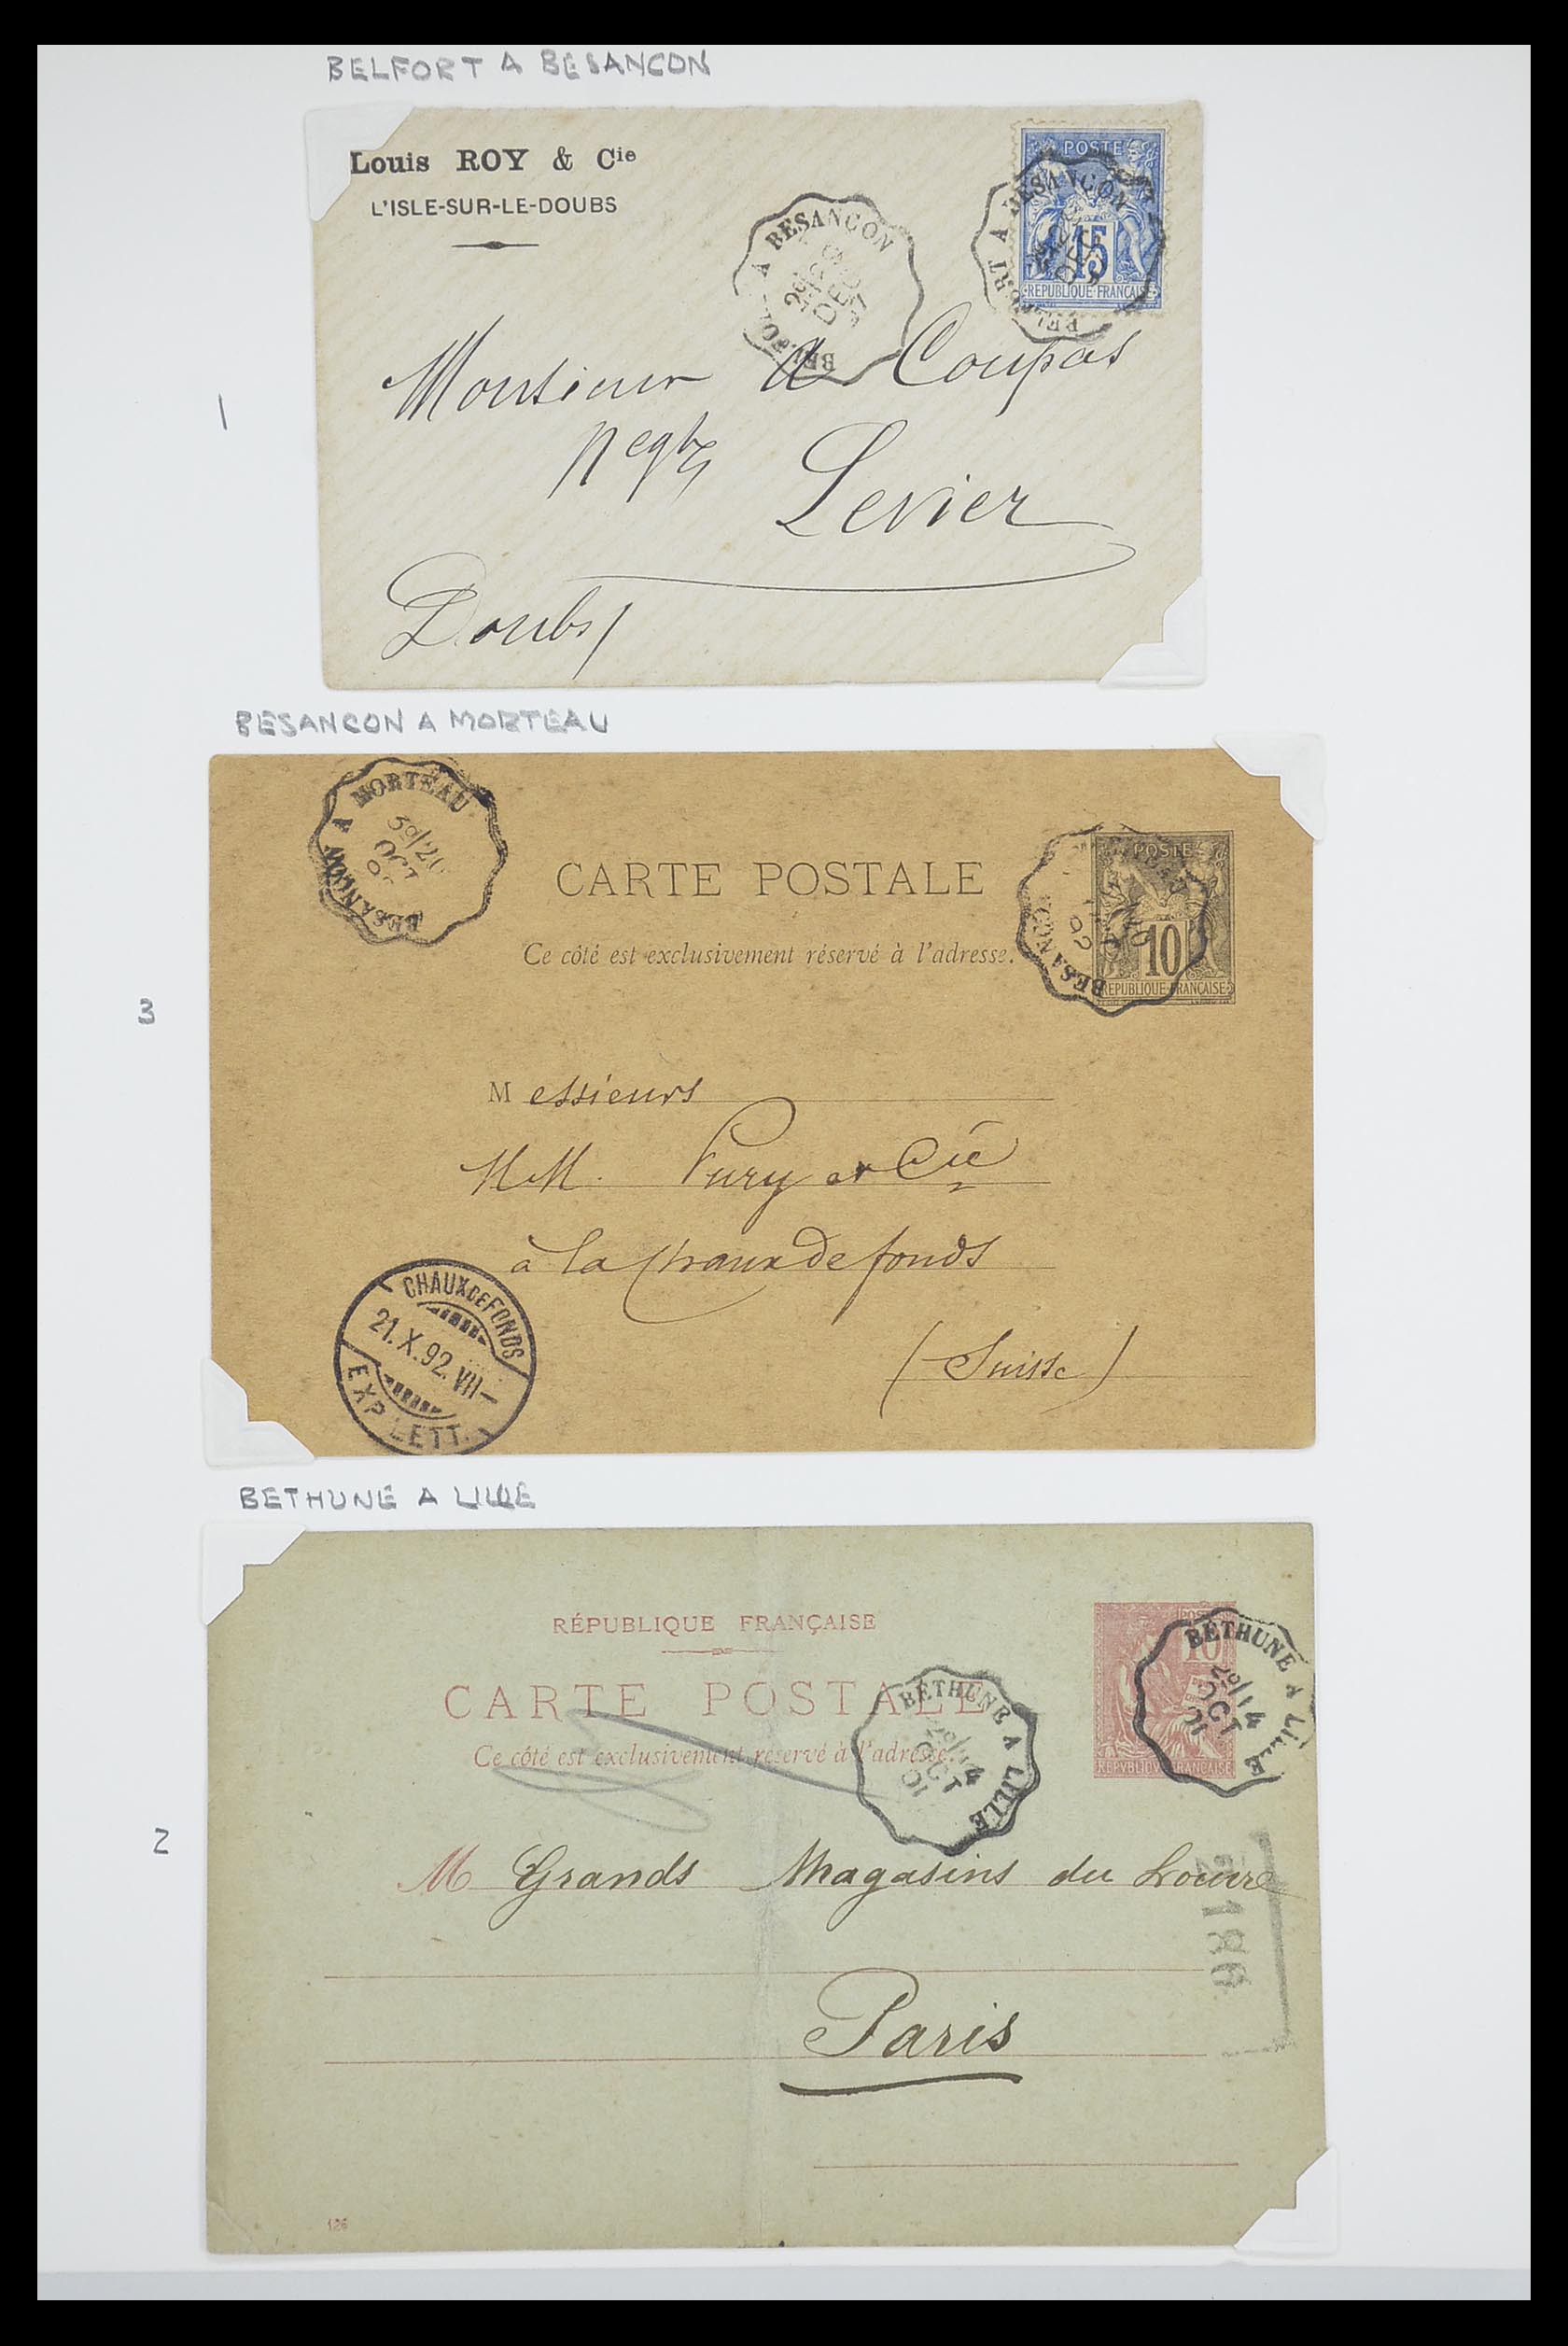 BELFORT A BESANCON
Louis ROY & Cie
L'ISLE-SUR-LE-DOUBS
BELFORT A BESANCON
2º/29
DEC
POSTE
15
REPUBLIQUE FRANÇAISE
BESANCON
DEC
1
Monsieur A Coupas
Negts
Levier
Doubs
BESANCON A MORTEAU
BESANCON A MORTEAU
OCT
CARTE POSTALE
Ce côté est exclusivement réservé à l'adresse.
POSTE
10
REPUBLIQUE FRANÇAISE
BESANCON
92
3
Messieurs
MM. Pury et Cie
à la Chaux de fonds
(Suisse)
CHAUX DE FONDS
21.X.92.VII-
EXP. LETT.
BETHUNE A LILLE
RÉPUBLIQUE FRANÇAISE
CARTE POSTALE
Ce côté est exclusivement réservé à l'adresse.
POSTE
10
REPVBLIQVE FRANÇAISE
BETHUNE A LILLE
2º/14
OCT
01
BETHUNE A LILLE
2º/14
OCT
01
2
M Grands Magasins du Louvre
Paris
126